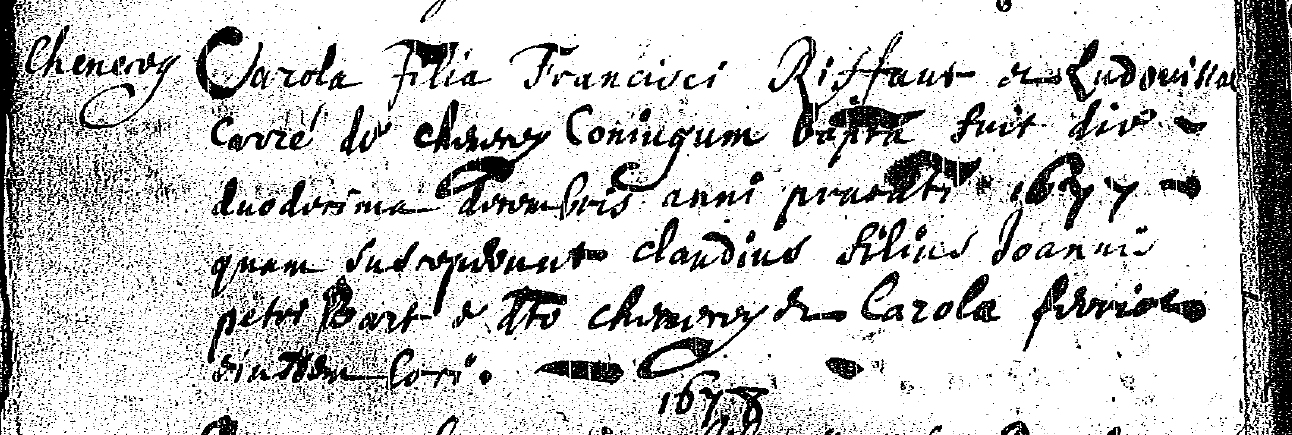 Chenevey Carola filia Francisci Riffaut et Ludovisiae
Carré de chenevey Coniugum bapta fuit die
duodecima decembris anni praedti 1677
quam susceperunt claudius filius Joannis
petri Bart e dto chenevey et Carola
eiusdem loci.
1678